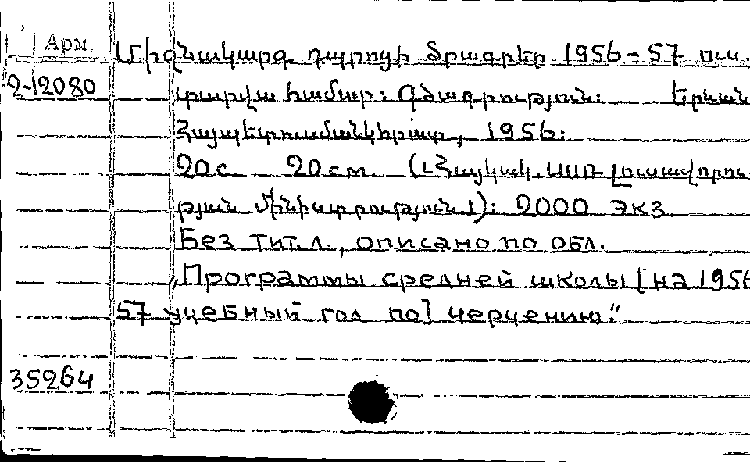 Арм.
Միջնակարգ դպրոցի ծրագրեր 1956-57 ուս.
2-12080
տարվա համար: Գծագրություն: Երևան
Հայպետուսմանկհրատ, 1956:
20с. 20см. (Հայկակ. ՍՍՌ լուսավորու-
թյան մինիստրություն): 2000 экз.
Без тит.л., описано по обл.
„Программы средней школы [на 1956
57 учебный год по] черчению."
35264